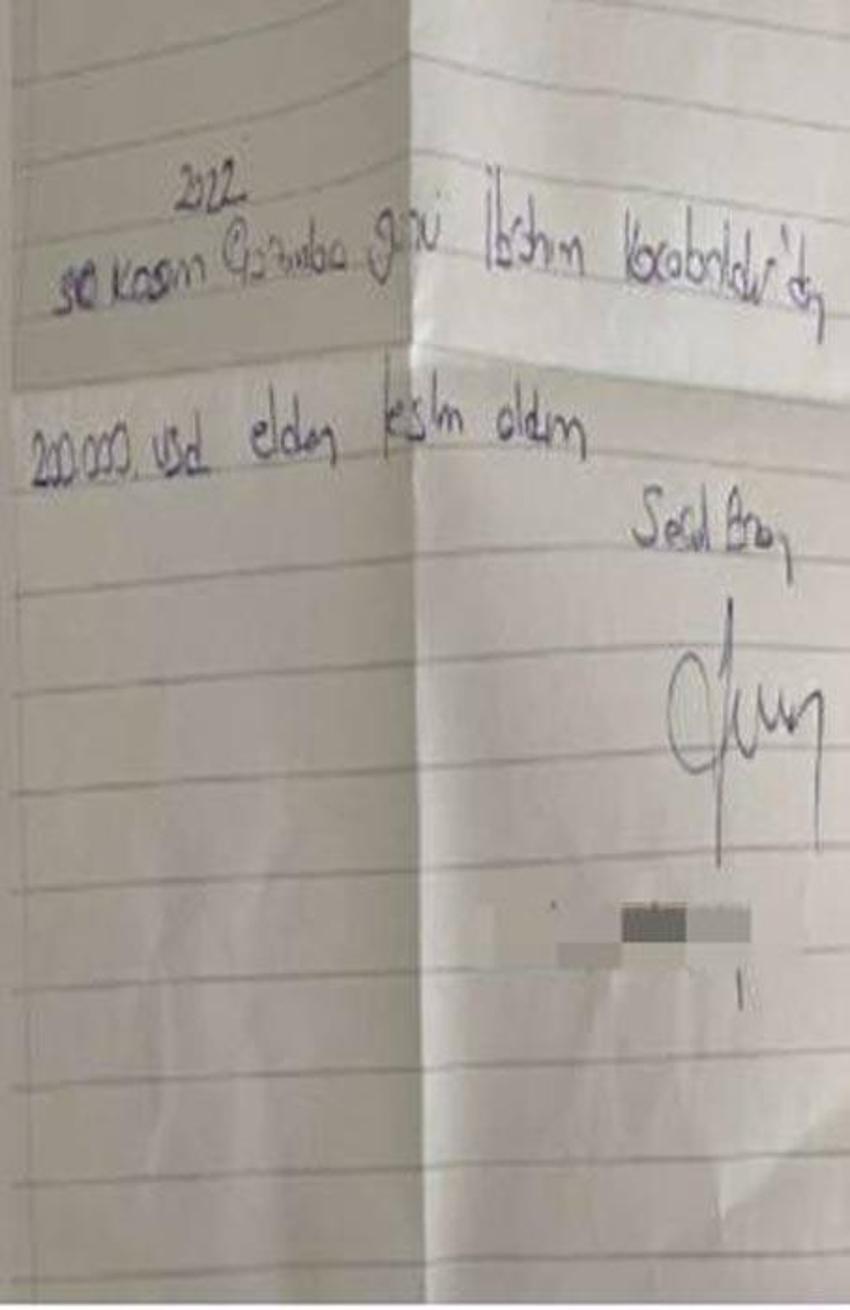 2022
30 Kasım Çarşamba günü İbrahim Kocabaldır'dan
200.000. usd elden teslim aldım
Seçil Erzan